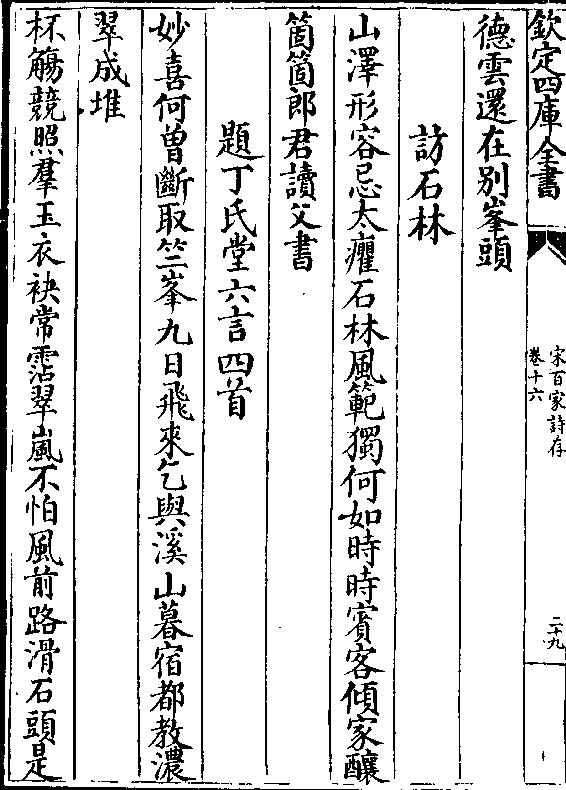 欽定四庫全書
宋百家詩存
卷十六
二十九
德雲還在别峯頭
訪石林
山澤形容忌太癯石林風範獨何如時時賓客傾家釀
箇箇郎君讀父書
題丁氏堂六言四首
妙喜何曾斷取竺峯九日飛來乞與溪山暮宿都教濃
翠成堆
杯觴競照羣玉衣袂常霑翠嵐不怕風前路滑石頭是